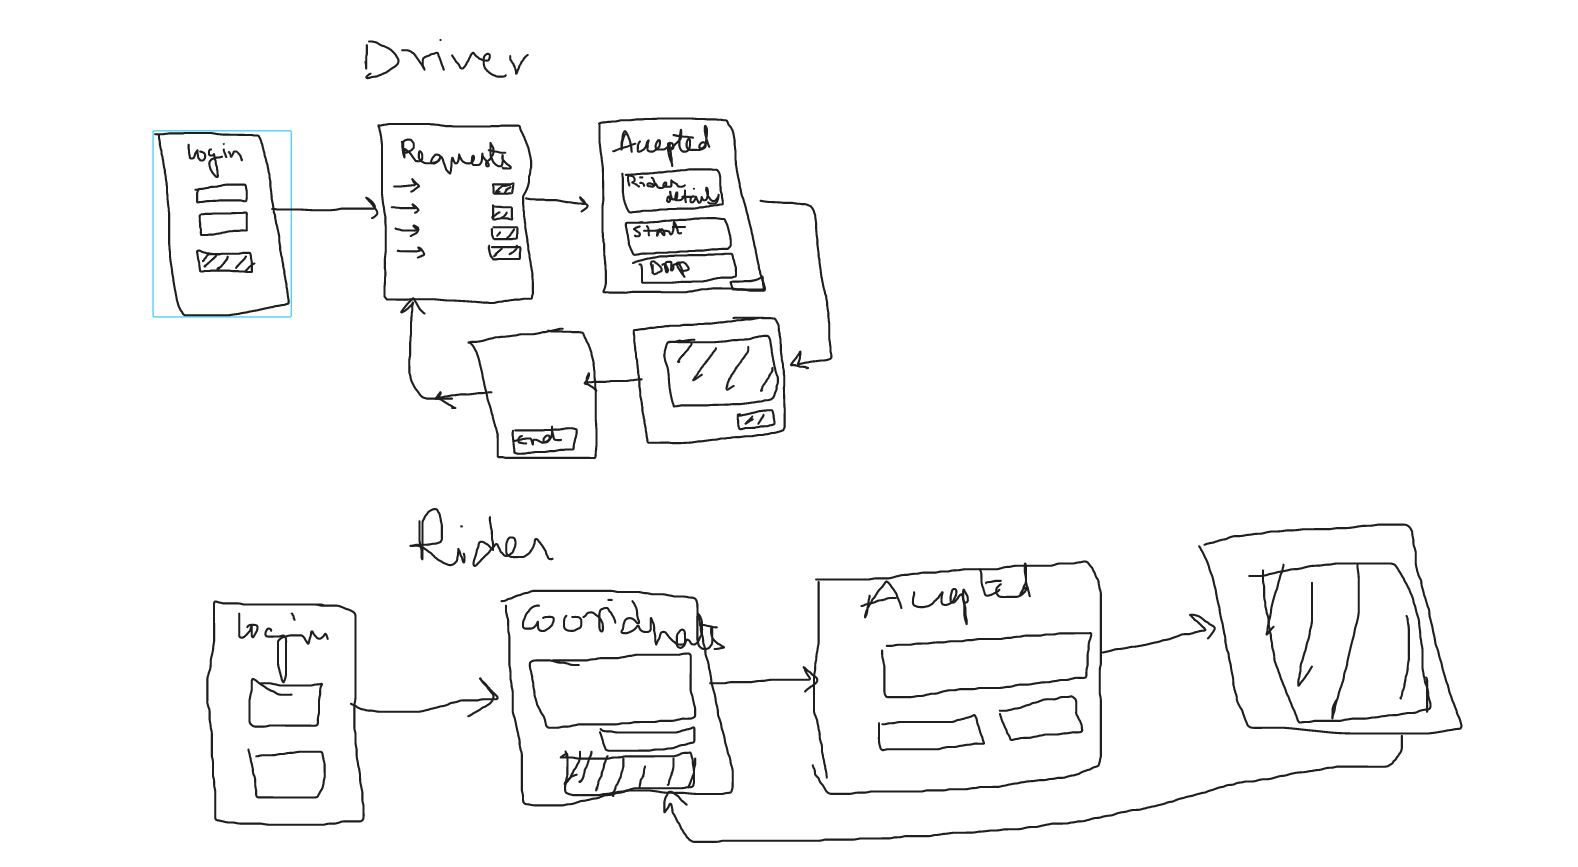 Driver
Login
Requests
Accepted
Rider
details
Start
Drop
end
Rider
Login
Cooridnats
Accepted